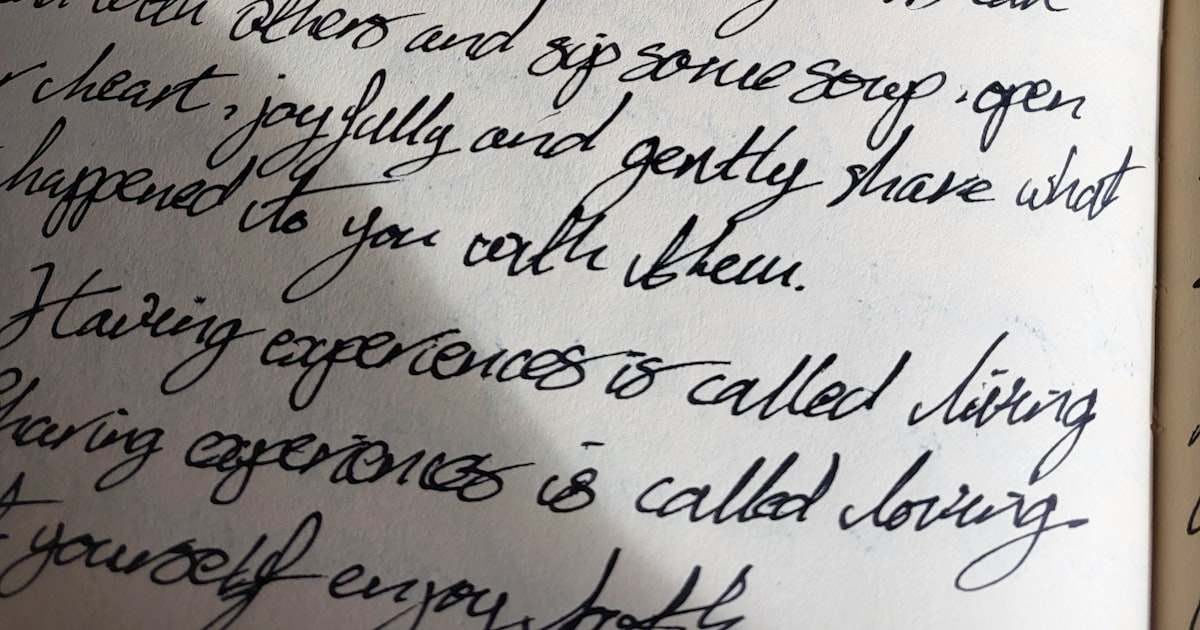 with others and sip some soup, open
heart, joyfully and gently share what
happened to you with them.
Having experiences is called living
Sharing experiences is called loving.
yourself enjoy both